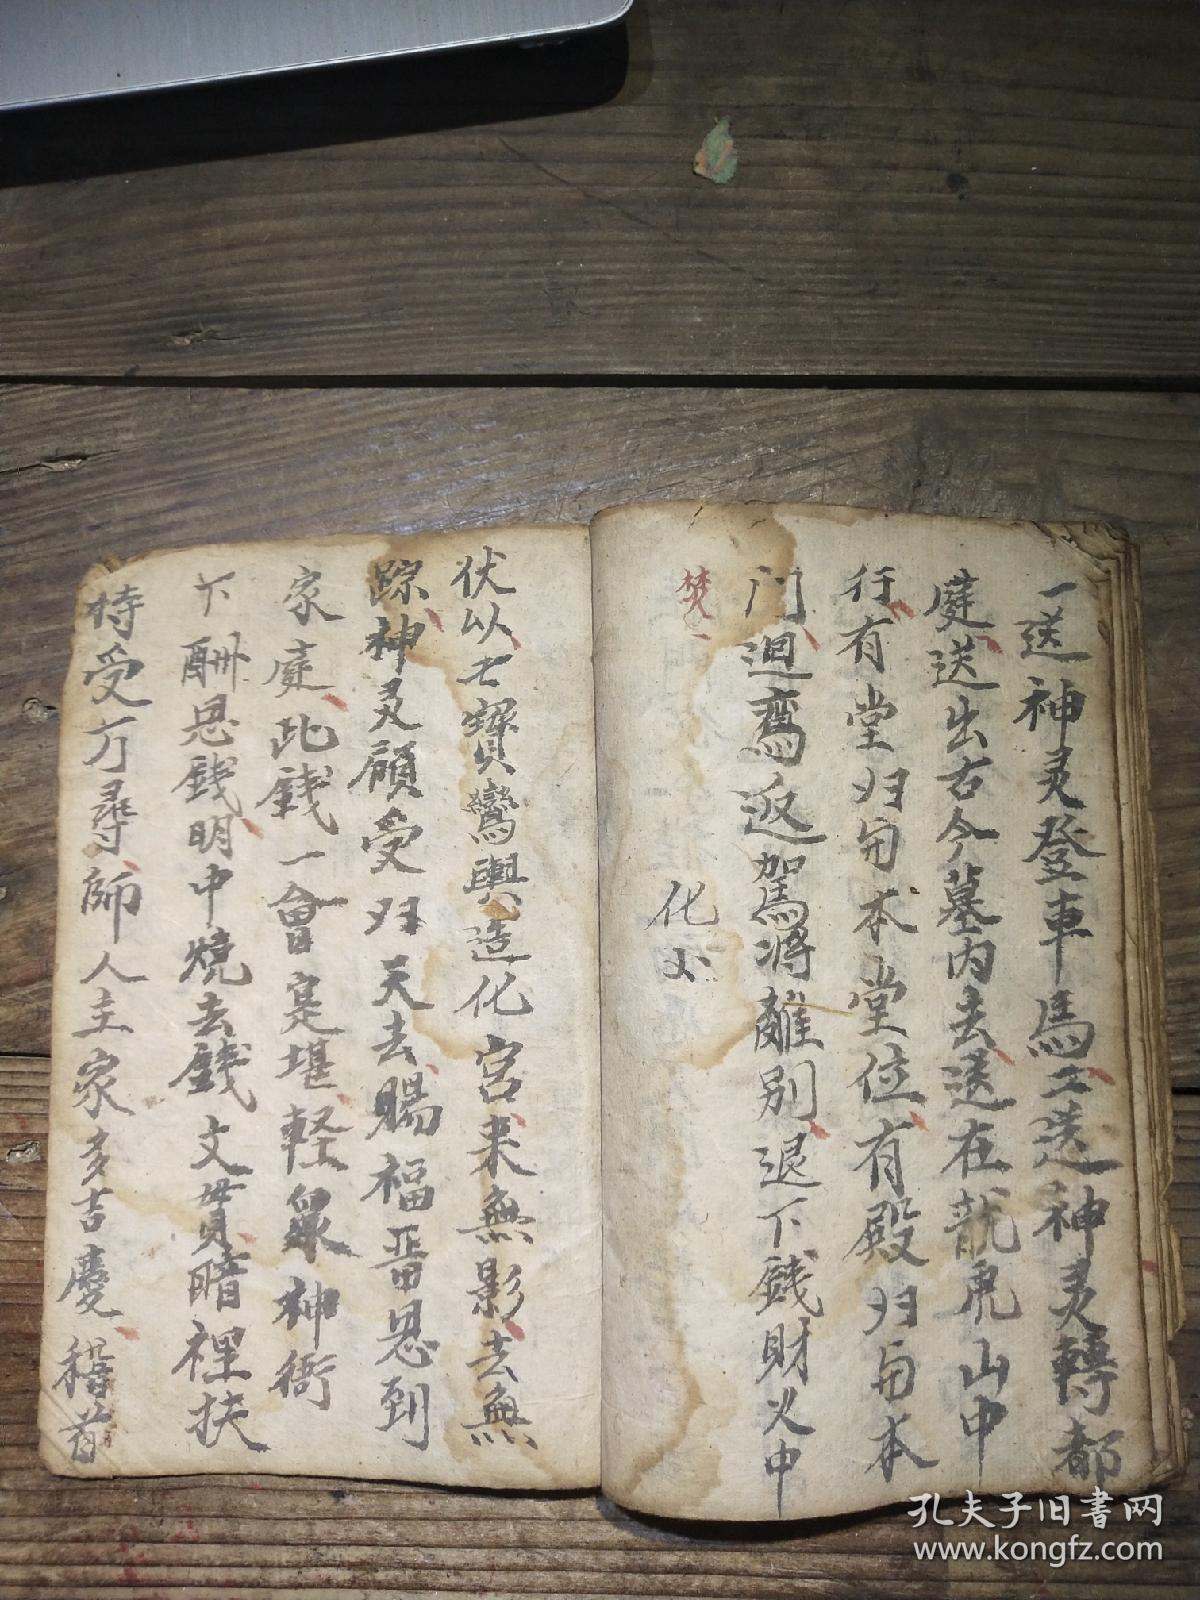 一送神灵登車馬二送神灵轉都
庭送出古今墓内去送在龍虎山中
行有堂归向本堂位有殿归向本
门迴鸾返驾将離别退下錢財火中
焚
化
伏以七寶鸞輿造化宮来無影去無
踪神灵願受归天去賜福畨恩到
家庭此錢一會寔堪軽眾神衙
下酬恩錢明中燒去錢文貫暗裡扶
持受万尋師人主家多吉慶稽首
孔夫子旧书网
www.kongfz.com